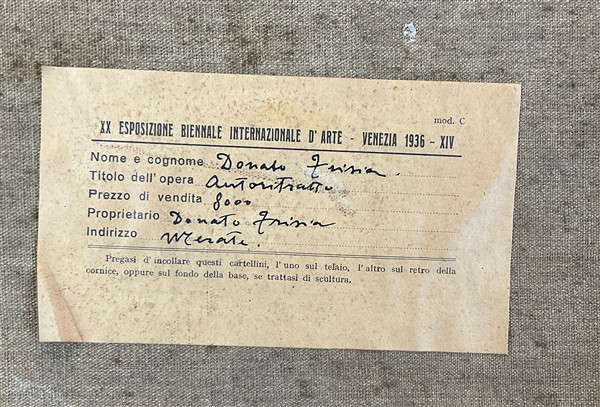 mod. C
XX ESPOSIZIONE BIENNALE INTERNAZIONALE D'ARTE - VENEZIA 1936 - XIV
Nome e cognome Donato Frisia.
Titolo dell'opera Autoritratto
Prezzo di vendita 8000
Proprietario Donato Frisia
Indirizzo Merate.
Pregasi d'incollare questi cartellini, l'uno sul telaio, l'altro sul retro della
cornice, oppure sul fondo della base, se trattasi di scultura.